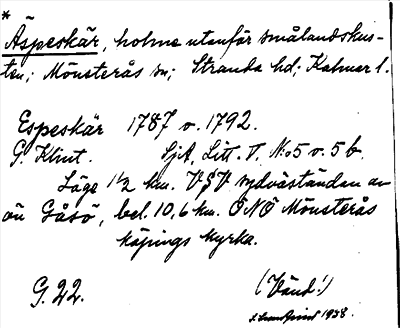 *
Äspeskär, holme utanför smålandskus-
ten; Mönsterås sn; Stranda hd; Kalmar l.
Espeskär 1787 o. 1792.
G. Klint. SjA, Litt. T. N:o 5 o. 5 b.
Läge 1 1/2 km. VSV sydväständan av
ön Gåsö, bel. 10,6 km. ÖNÖ Mönsterås
köpings kyrka.
G. 22. (Vänd!)
1938.